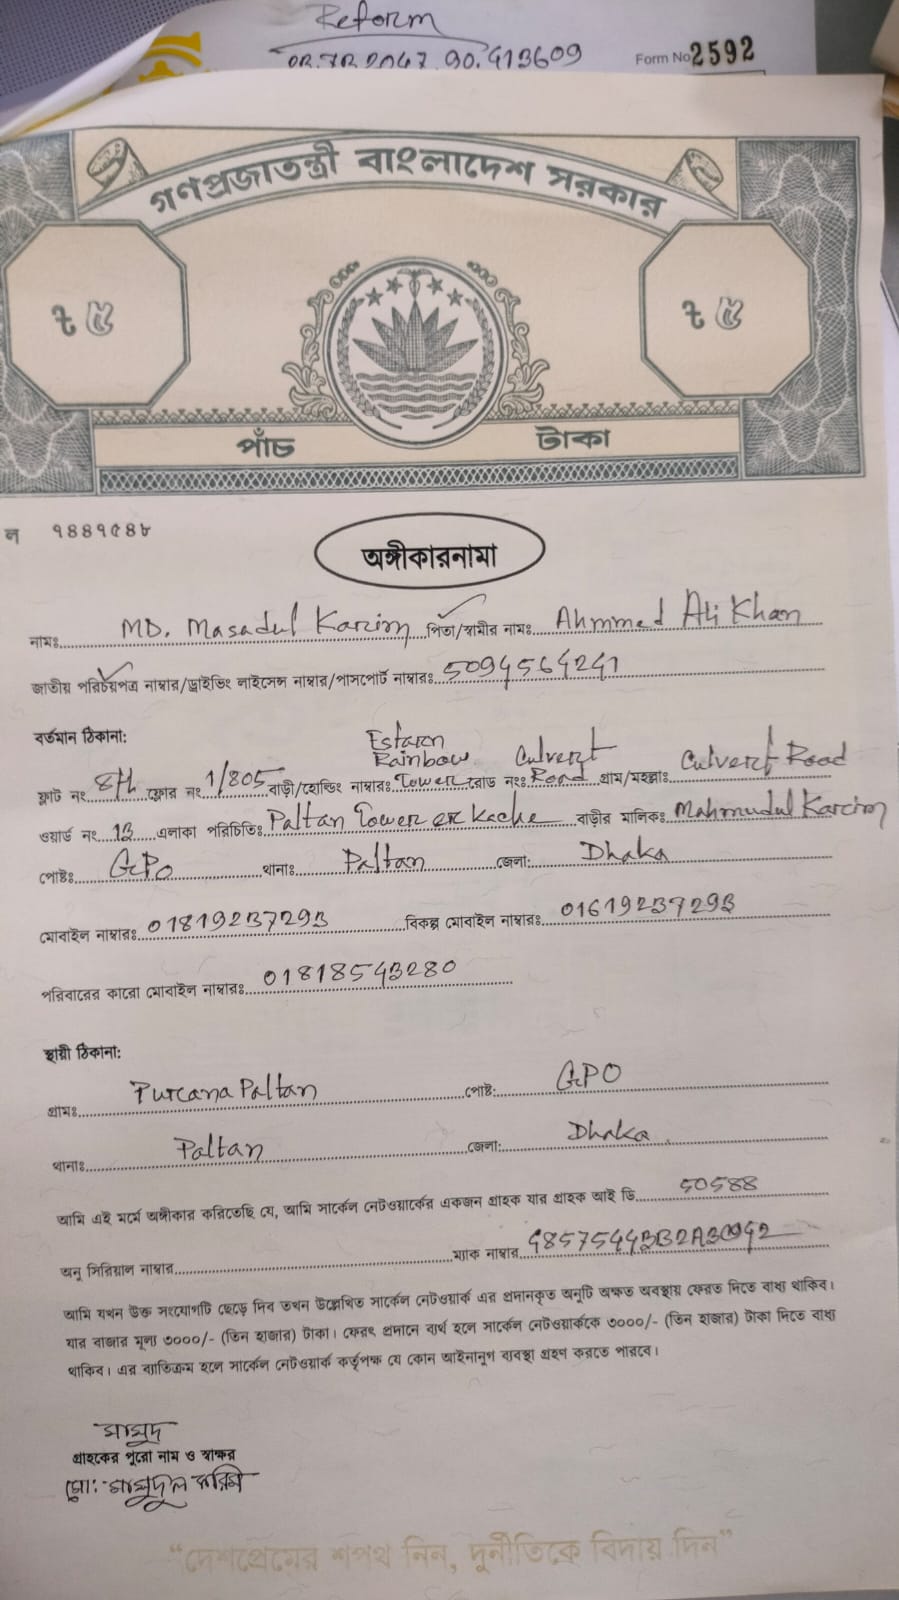 Reform
Form No 2592
গণপ্রজাতন্ত্রী বাংলাদেশ সরকার
৳ ৫ ৳ ৫
পাঁচ টাকা
ল ৭৪৪৭৫৪৮
অঙ্গীকারনামা
নামঃ MD. Masadul Karim পিতা/স্বামীর নামঃ Ahmmed Ali Khan
জাতীয় পরিচয়পত্র নাম্বার/ড্রাইভিং লাইসেন্স নাম্বার/পাসপোর্ট নাম্বারঃ 5094564241
বর্তমান ঠিকানা:
Estarn
Rainbow
ফ্লাট নং 8th ফ্লোর নং 1/805 বাড়ী/হোল্ডিং নাম্বারঃ Tower রোড নংঃ Culvert Road গ্রাম/মহল্লাঃ Culvert Road
ওয়ার্ড নং 13 এলাকা পরিচিতিঃ Paltan Tower er kache বাড়ীর মালিকঃ Mahmudul Karim
পোষ্টঃ GPO থানাঃ Paltan জেলা: Dhaka
মোবাইল নাম্বারঃ 01819237293 বিকল্প মোবাইল নাম্বারঃ 01619237293
পরিবারের কারো মোবাইল নাম্বারঃ 01818543280
স্থায়ী ঠিকানা:
গ্রামঃ Purana Paltan পোষ্ট: GPO
থানাঃ Paltan জেলা: Dhaka
আমি এই মর্মে অঙ্গীকার করিতেছি যে, আমি সার্কেল নেটওয়ার্কের একজন গ্রাহক যার গ্রাহক আই ডি 50588
অনু সিরিয়াল নাম্বার ম্যাক নাম্বার
আমি যখন উক্ত সংযোগটি ছেড়ে দিব তখন উল্লেখিত সার্কেল নেটওয়ার্ক এর প্রদানকৃত অনুটি অক্ষত অবস্থায় ফেরত দিতে বাধ্য থাকিব।
যার বাজার মূল্য ৩০০০/- (তিন হাজার) টাকা। ফেরৎ প্রদানে ব্যর্থ হলে সার্কেল নেটওয়ার্ককে ৩০০০/- (তিন হাজার) টাকা দিতে বাধ্য
থাকিব। এর ব্যতিক্রম হলে সার্কেল নেটওয়ার্ক কর্তৃপক্ষ যে কোন আইনানুগ ব্যবস্থা গ্রহণ করতে পারবে।
মাসুদ
গ্রাহকের পুরো নাম ও স্বাক্ষর
মো: মাসুদুল করিম
“দেশপ্রেমের শপথ নিন, দুর্নীতিকে বিদায় দিন”